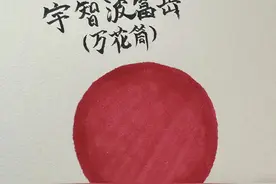 宇智波富岳
(万花筒)